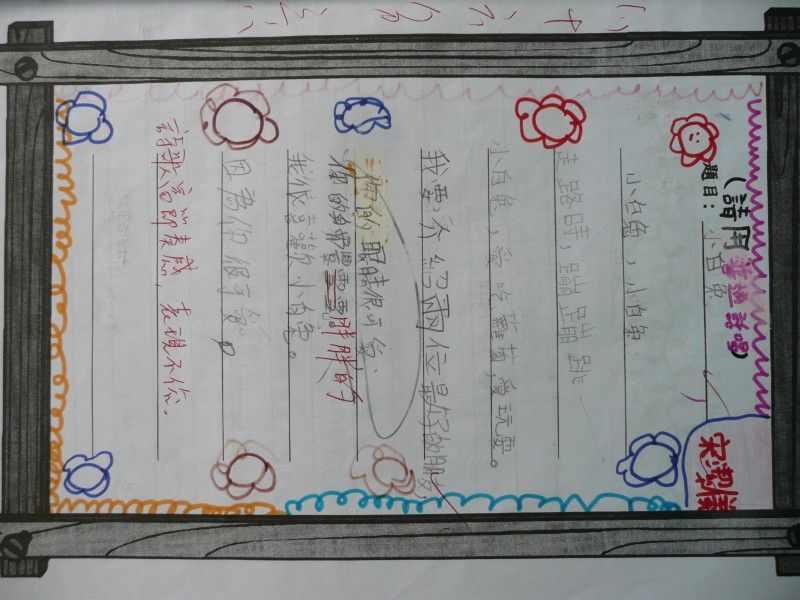 (請閱
題目：小白兔
小白兔，小白兔
走路時，蹦蹦跳跳
小白兔，愛吃蘿蔔，愛玩耍。
我要介紹兩位最好的朋友
你的眼睛很可愛，
你的身胖胖的
我很喜歡小白兔。
因為你很可愛。
詩歌富節奏感，表現不俗.